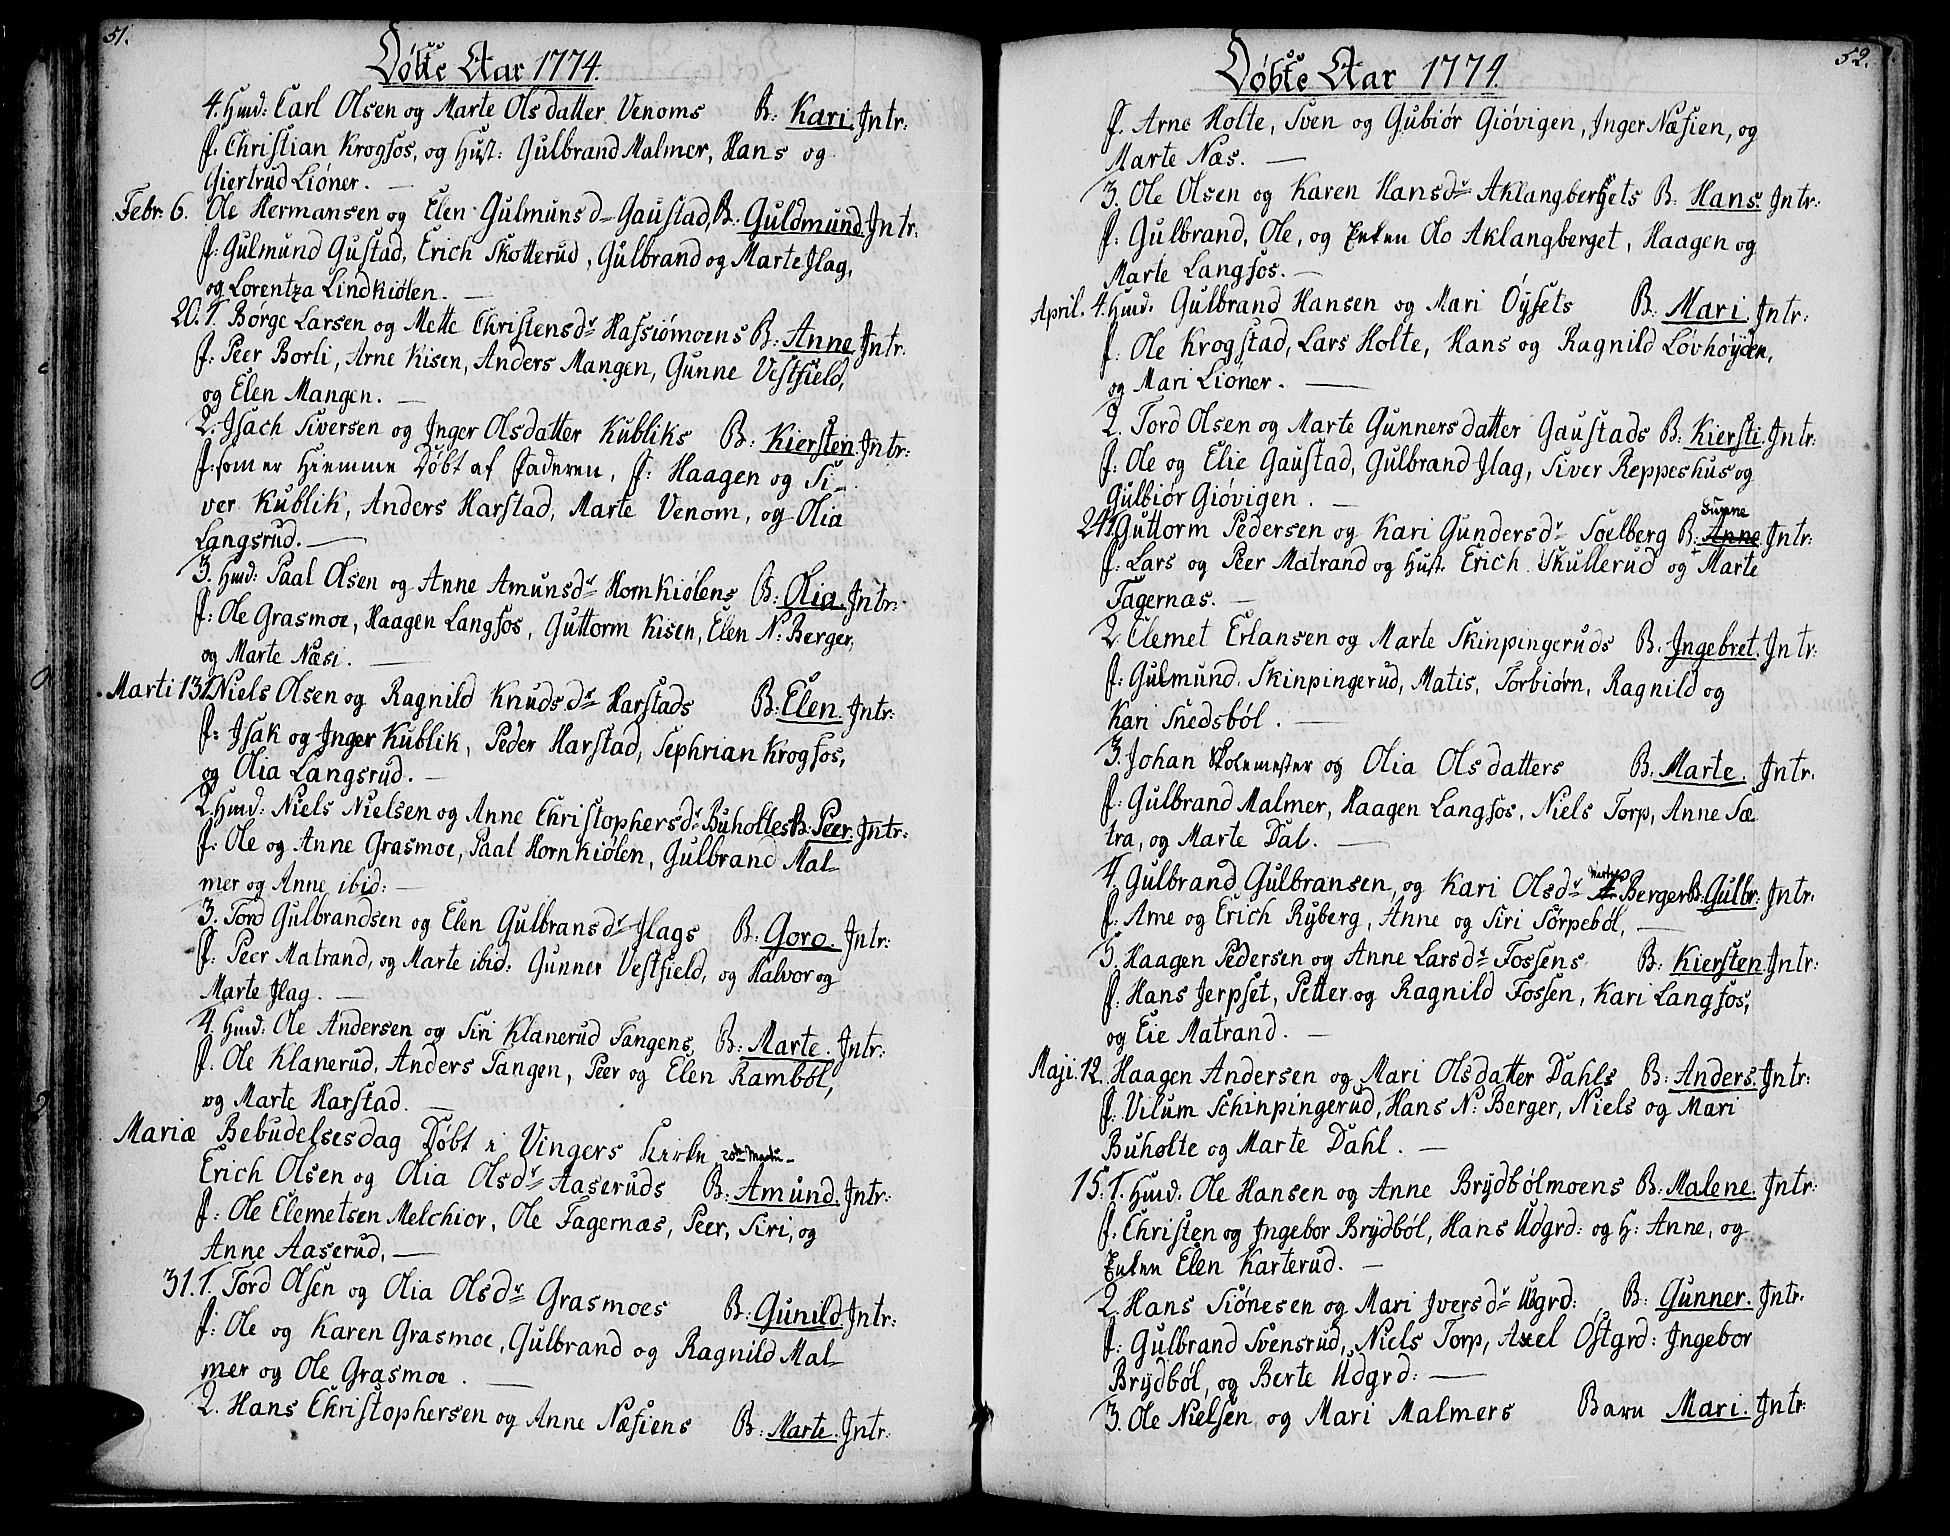 51.
Døbte Aar 1774.
4. Hmd: Carl Olsen og Marte Olsdatter Venoms B: Kari. Jntr:
F. Christian Krogfos, og Hust: Gulbrand Malmer, Hans og
Giertrud Liøner. —
Febr: 6. Ole Hermansen og Elen Gulmunsdr Gaustad, B: Guldmund. Jntr:
F: Gulmund Gustad, Erich Skotterud, Gulbrand og Marte Jlag,
og Lorentza Lindkiølen. —
20. 1. Børge Larsen og Mette Christensdr Hafsiømoens B: Anne. Jntr:
F: Peer Borli, Arne Kisen, Anders Mangen, Gunne Vestfield,
og Elen Mangen. —
2. Jsach Siversen og Jnger Olsdatter Kubliks B: Kiersten. Jntr:
F: som er Hiemme Døbt af Faderen, F: Haagen og Si-
ver Kublik, Anders Harstad, Marte Venom, og Olia
Langsrud. —
3. Hmd: Paal Olsen og Anne Amunsdr Hornkiølens B: Olia. Jntr:
F: Ole Grasmoe, Haagen Langfos, Guttorm Kisen, Elen N: Berger,
og Marte Næsi. —
Marti 13. 1. Niels Olsen og Ragnild Knudsdr Harstads B: Elen. Jntr:
F: Jsak og Jnger Kublik, Peder Harstad, Sephrian Krogfos,
og Olia Langsrud. —
2. Hmd: Niels Nielsen og Anne Christophersdr Buholtes B: Peer. Jntr:
F: Ole og Anne Grasmoe, Paal Hornkiølen, Gulbrand Mal-
mer og Anne ibid: —
3. Tord Gulbrandsen og Elen Gulbransdr Jlags B: Goro. Jntr:
F: Peer Matrand, og Marte ibid: Gunner Vestfield, og Halvor og
Marte Jlag. —
4. Hmd: Ole Andersen og Siri Klanerud Tangens B: Marte. Jntr:
F: Ole Klanerud, Anders Tangen, Peer og Elen Rambøl,
og Marte Harstad. —
Mariæ Bebudelsesdag Døbt i Vingers Kirke
Erich Olsen og Olia Olsdr Aaseruds B: Amund. Jntr:
F: Ole Clemetsen Melchior, Ole Fagernæs, Peer, Siri, og
Anne Aaserud, —
31. 1. Tord Olsen og Olia Olsdr Grasmoes B: Gunild. Jntr:
F: Ole og Karen Grasmoe, Gulbrand og Ragnild Mal-
mer og Ole Grasmoe. —
2. Hans Christophersen og Anne Næsiens B: Marte. Jntr:
52.
Døbte Aar 1774.
F. Arne Holte, Sven og Gubiør Giøvigen, Jnger Næsien, og
Marte Næs. —
3. Ole Olsen og Karen Hansdr Aklangbergets B: Hans. Jntr:
F: Gulbrand, Ole, og Enken Olo Aklangberget, Haagen og
Marte Langfos. —
April. 4. Hmd. Gulbrand Hansen og Mari Øysets B: Mari. Jntr:
F: Ole Krogstad, Lars Holte, Hans og Ragnild Løvhøyden,
og Mari Liøner. —
2. Tord Olsen og Marte Gunnersdatter Gaustads B: Kiersti. Jntr:
F: Ole og Elie Gaustad, Gulbrand Jlag, Siver Reppeshus og
Gulbiør Giøvigen. —
24. 1. Guttorm Pedersen og Kari Gundersdr Soelberg B: Anne Jntr:
F: Lars og Peer Matrand og Hust. Erich Skullerud og Marte
Fagernæs. —
2. Clemet Erlansen og Marte Skinpingeruds B. Jngebret. Jntr:
F: Gulmund Skinpingerud, Matis, Torbiørn, Ragnild og
Kari Snedsbøl. —
3. Johan Skolemester og Olia Olsdatters B. Marte. Jntr:
F: Gulbrand Malmer, Haagen Langfos, Niels Torp, Anne Sæ-
tra, og Marte Dal. —
4. Gulbrand Gulbransen, og Kari Olsdr Berger B: Gulbr: Jntr:
F: Arne og Erich Ryberg, Anne og Siri Sørpebøl, —
5. Haagen Pedersen og Anne Larsdr Fossens B: Kiersten. Jntr:
F. Hans Jerpset, Petter og Ragnild Fossen, Kari Langfos,
og Eie Matrand. —
Maji. 12. Haagen Andersen og Mari Olsdatter Dahls B: Anders. Jntr:
F: Vilum Schinpingerud, Hans N: Berger, Niels og Mari
Buholte og Marte Dahl. —
15. 1. Hmd. Ole Hansen og Anne Brydbølmoens B: Malene. Jntr:
F. Christen og Jngebor Brydbøl, Hans Udgrd: og H: Anne, og
Enken Elen Karterud. —
2. Hans Siønesen og Mari Jversdr Udgrd: B: Gunner. Jntr:
F: Gulbrand Svensrud, Niels Torp, Axel Ostgrd: Jngebor
Brydbøl, og Berte Udgrd: —
3. Ole Nielsen og Mari Malmers Barn Mari. Jntr: